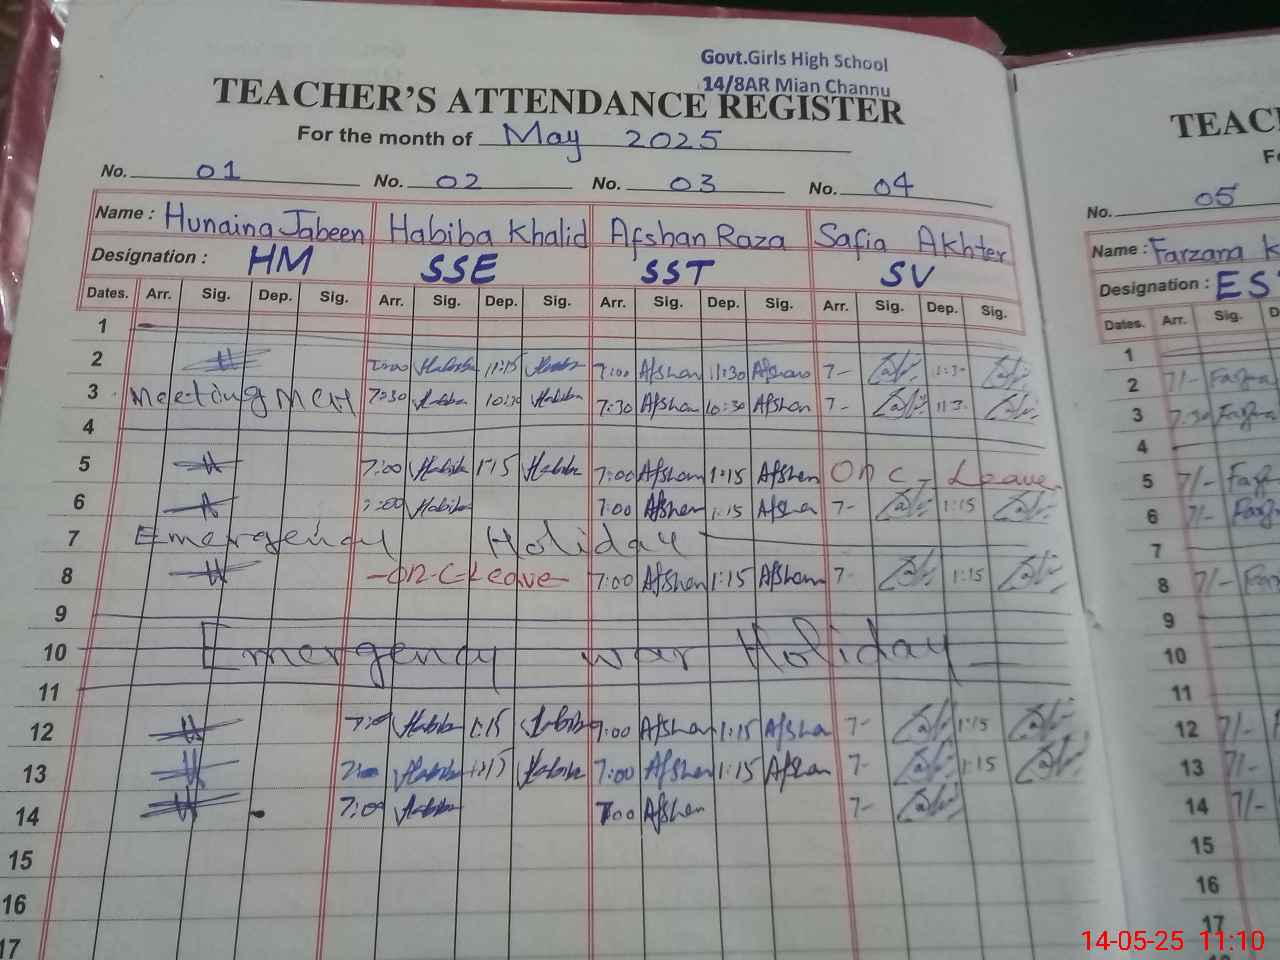 Govt.Girls High School
14/8AR Mian Channu
TEACHER'S ATTENDANCE REGISTER
For the month of May 2025
No. 01 No. 02 No. 03 No. 04
Name : Hunaina Jabeen Habiba Khalid Afshan Raza Safia Akhter
Designation : HM SSE SST SV
Dates. Arr. Sig. Dep. Sig. Arr. Sig. Dep. Sig. Arr. Sig. Dep. Sig. Arr. Sig. Dep. Sig.
1
2 7:00 Habiba 11:15 Habiba 7:00 Afshan 11:30 Afshan 7-
3 Meeting 7:30 Habiba Habiba 7:30 Afshan 10:30 Afshan 7-
4
5 7:00 Habiba 1:15 Habiba 7:00 Afshan 1:15 Afshan On C-Leave
6 7:00 Habiba 7:00 Afshan 1:15 Afshan 7- 1:15
7 Emergency Holiday
8 -On C-Leave- 7:00 Afshan 1:15 Afshan 7- 1:15
9
10 Emergency war Holiday
11
12 Habiba 1:15 Habiba 7:00 Afshan 1:15 Afshan 7- 1:15
13 Habiba Habiba 7:00 Afshan 1:15 Afshan 7- 1:15
14 7:00 Habiba 7:00 Afshan 7-
15
16
17
TEAC
No. 05
Name : Farzana K
Designation : ES
Dates. Arr. Sig.
1
2 7/-
3 7:30
4
5 7/-
6 7/-
7
8 7/-
9
10
11
12 7/-
13 7/-
14 7/-
15
16
17
14-05-25 11:10